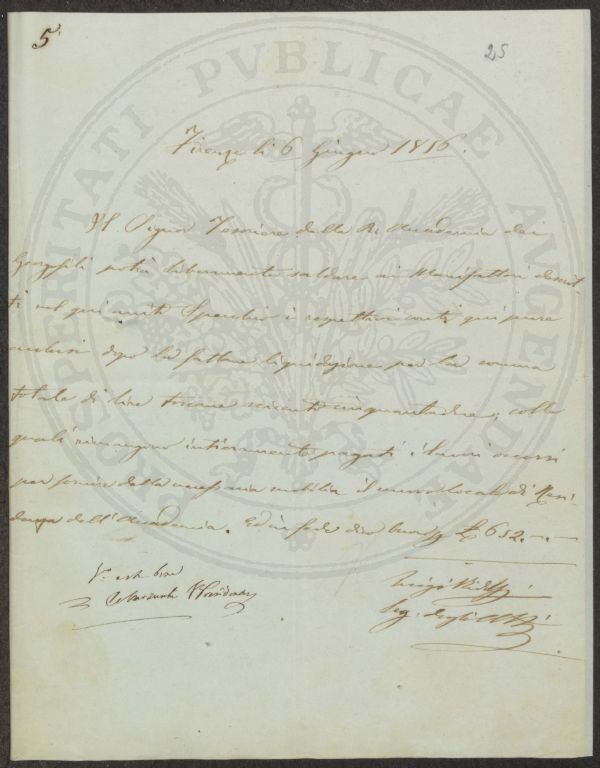 5
25
PROSPERITATI PVBLICAE AVGENDAE
Firenze li 6 Giugno 1856.
Il Signor Tesoriere della R. Accademia dei
Georgofili potrà liberamente saldare ai Manifattori descrit
ti nel qui unito Specchio i respettivi conti qui pure
inclusi dopo la fattane liquidazione per la somma
totale di lire toscane seicento cinquantadue; colle
quali rimangono intieramente pagati i lavori occorsi
per fornire della necessaria mobilia il nuovo locale di Resi
denza dell'Accademia. Ed in fede dico buone £ 652.-.-
V.
Luigi Ridolfi
Seg. degli Atti